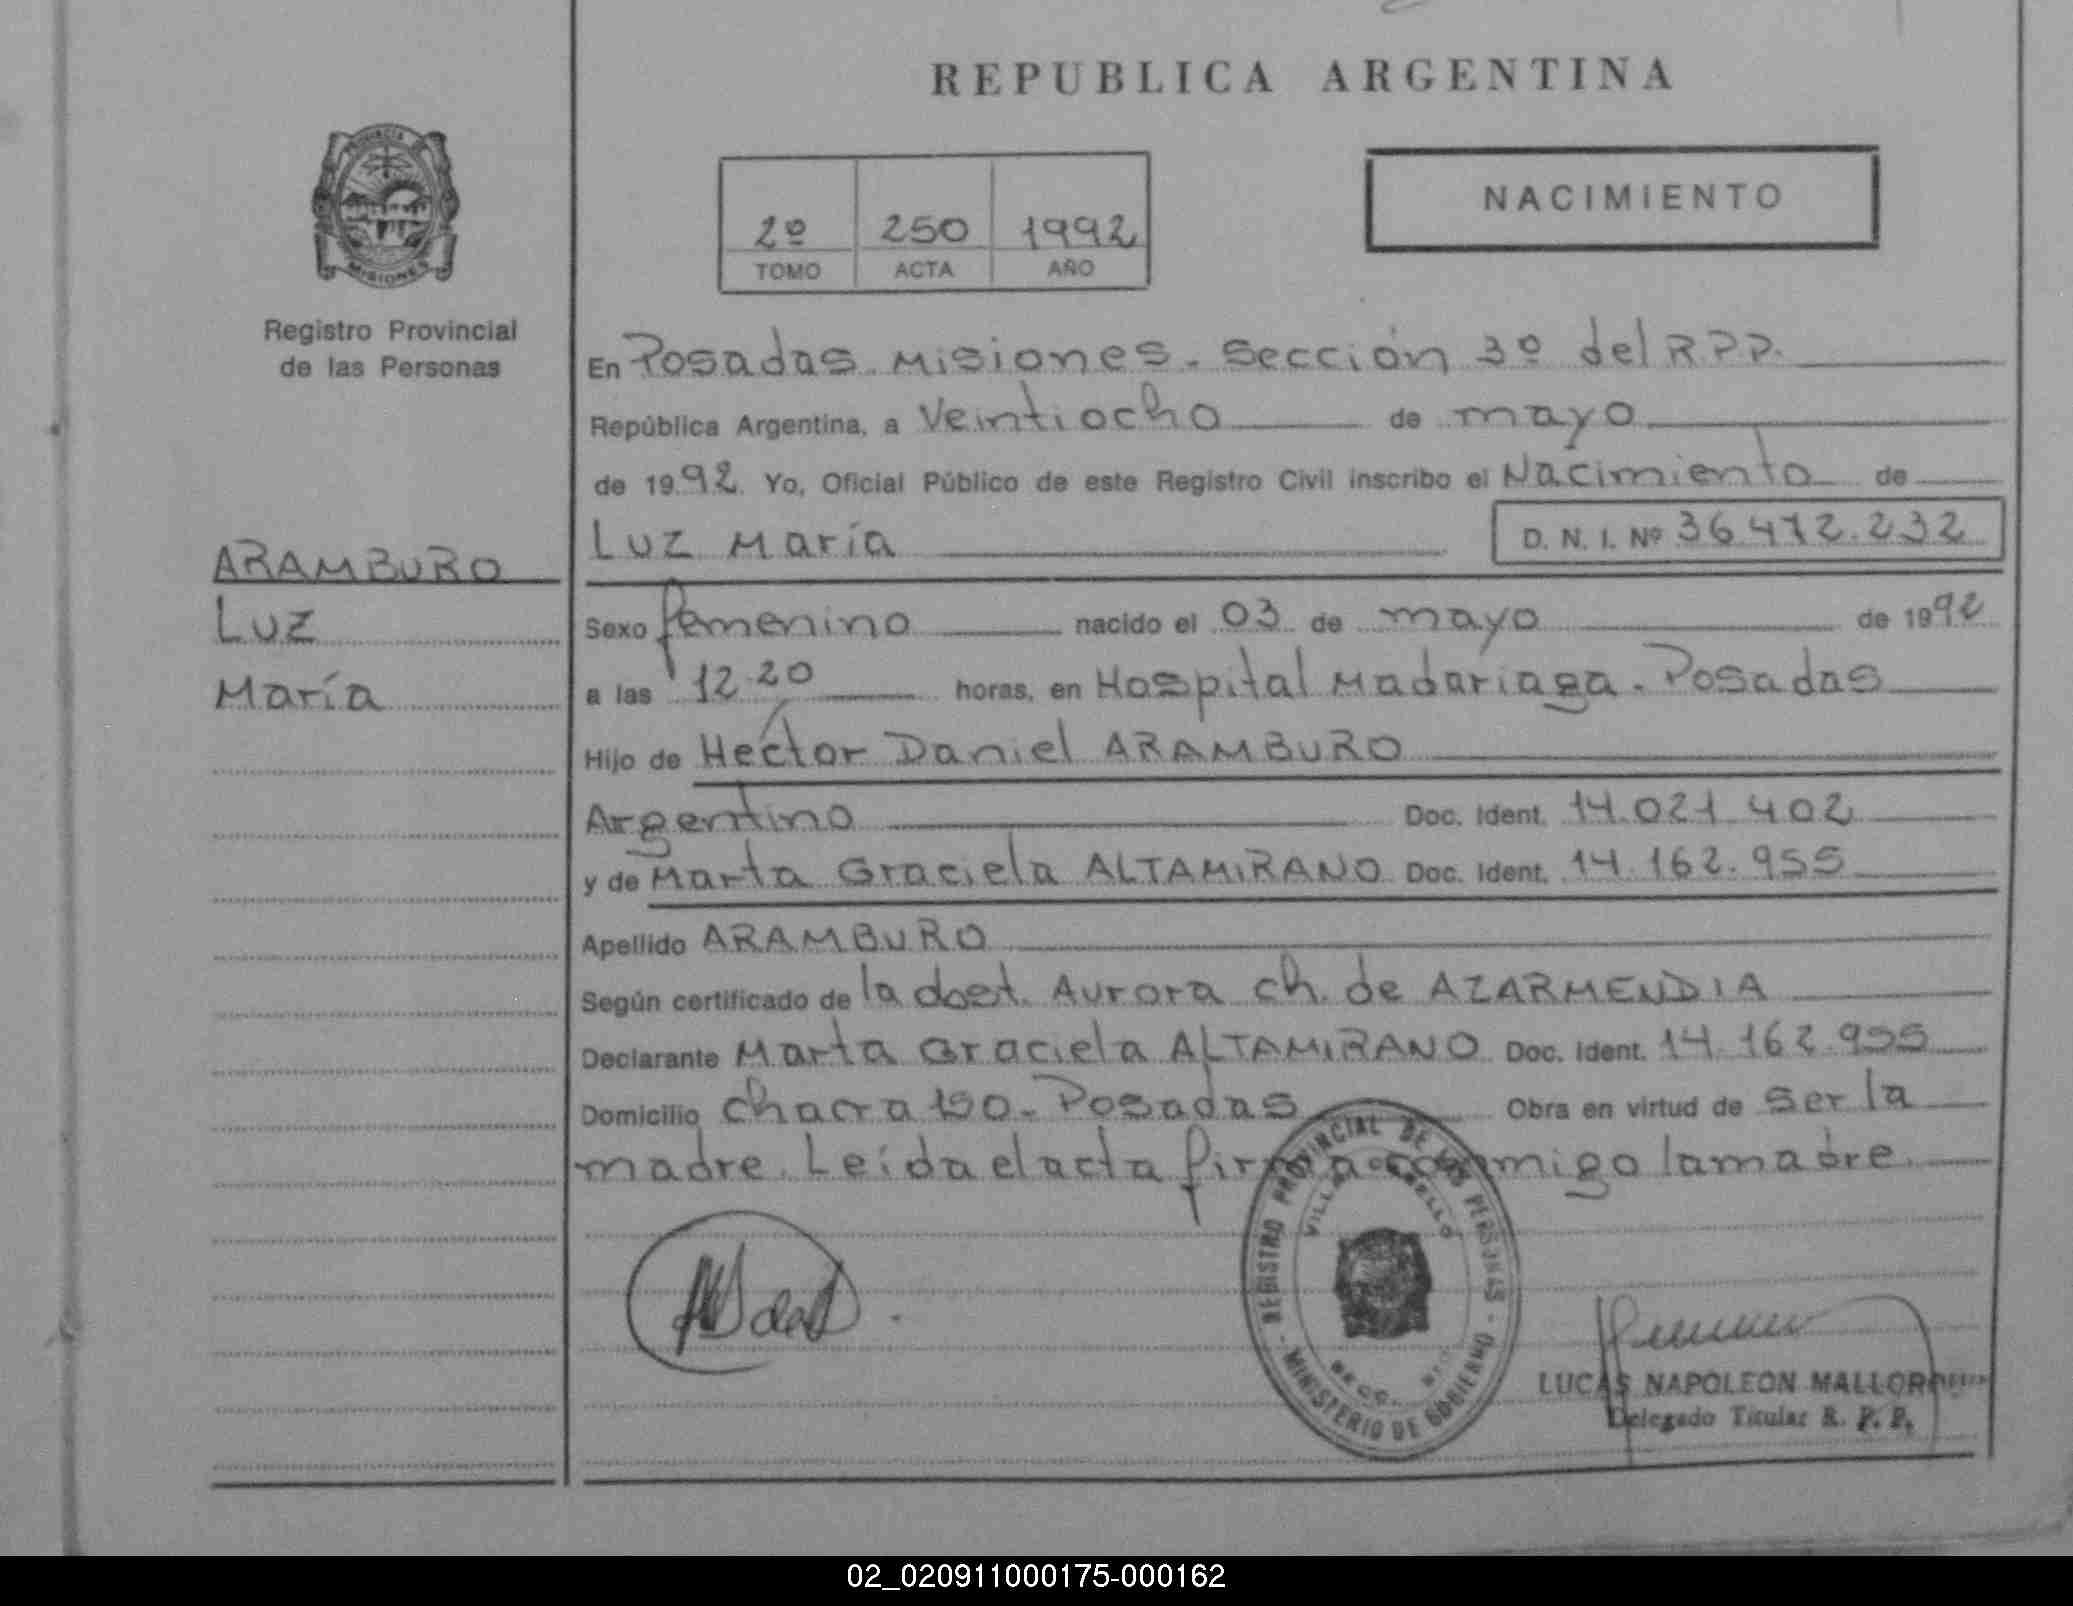 REPUBLICA ARGENTINA
PROVINCIA DE
MISIONES
Registro Provincial
de las Personas
2º 250 1992
TOMO ACTA AÑO
NACIMIENTO
ARAMBURO
Luz
María
En Posadas. Misiones. Sección 3º del R.P.P.
República Argentina, a Veintiocho de mayo
de 1992. Yo, Oficial Público de este Registro Civil inscribo el Nacimiento de
Luz María D. N. I. Nº 36.472.232
Sexo femenino nacido el 03 de mayo de 1992
a las 12.20 horas, en Hospital Madariaga. Posadas
Hijo de Héctor Daniel ARAMBURO
Argentino Doc. Ident. 14.021.402
y de Marta Graciela ALTAMIRANO Doc. Ident. 14.162.955
Apellido ARAMBURO
Según certificado de la doct. Aurora ch. de AZARMENDIA
Declarante Marta Graciela ALTAMIRANO Doc. Ident. 14.162.955
Domicilio chacra 190. Posadas Obra en virtud de ser la
madre. Leída el acta firma conmigo la madre.
REGISTRO PROVINCIAL DE LAS PERSONAS
MINISTERIO DE GOBIERNO
VILLA
LUCAS NAPOLEON
Delegado Titular R. P. P.
02_020911000175-000162